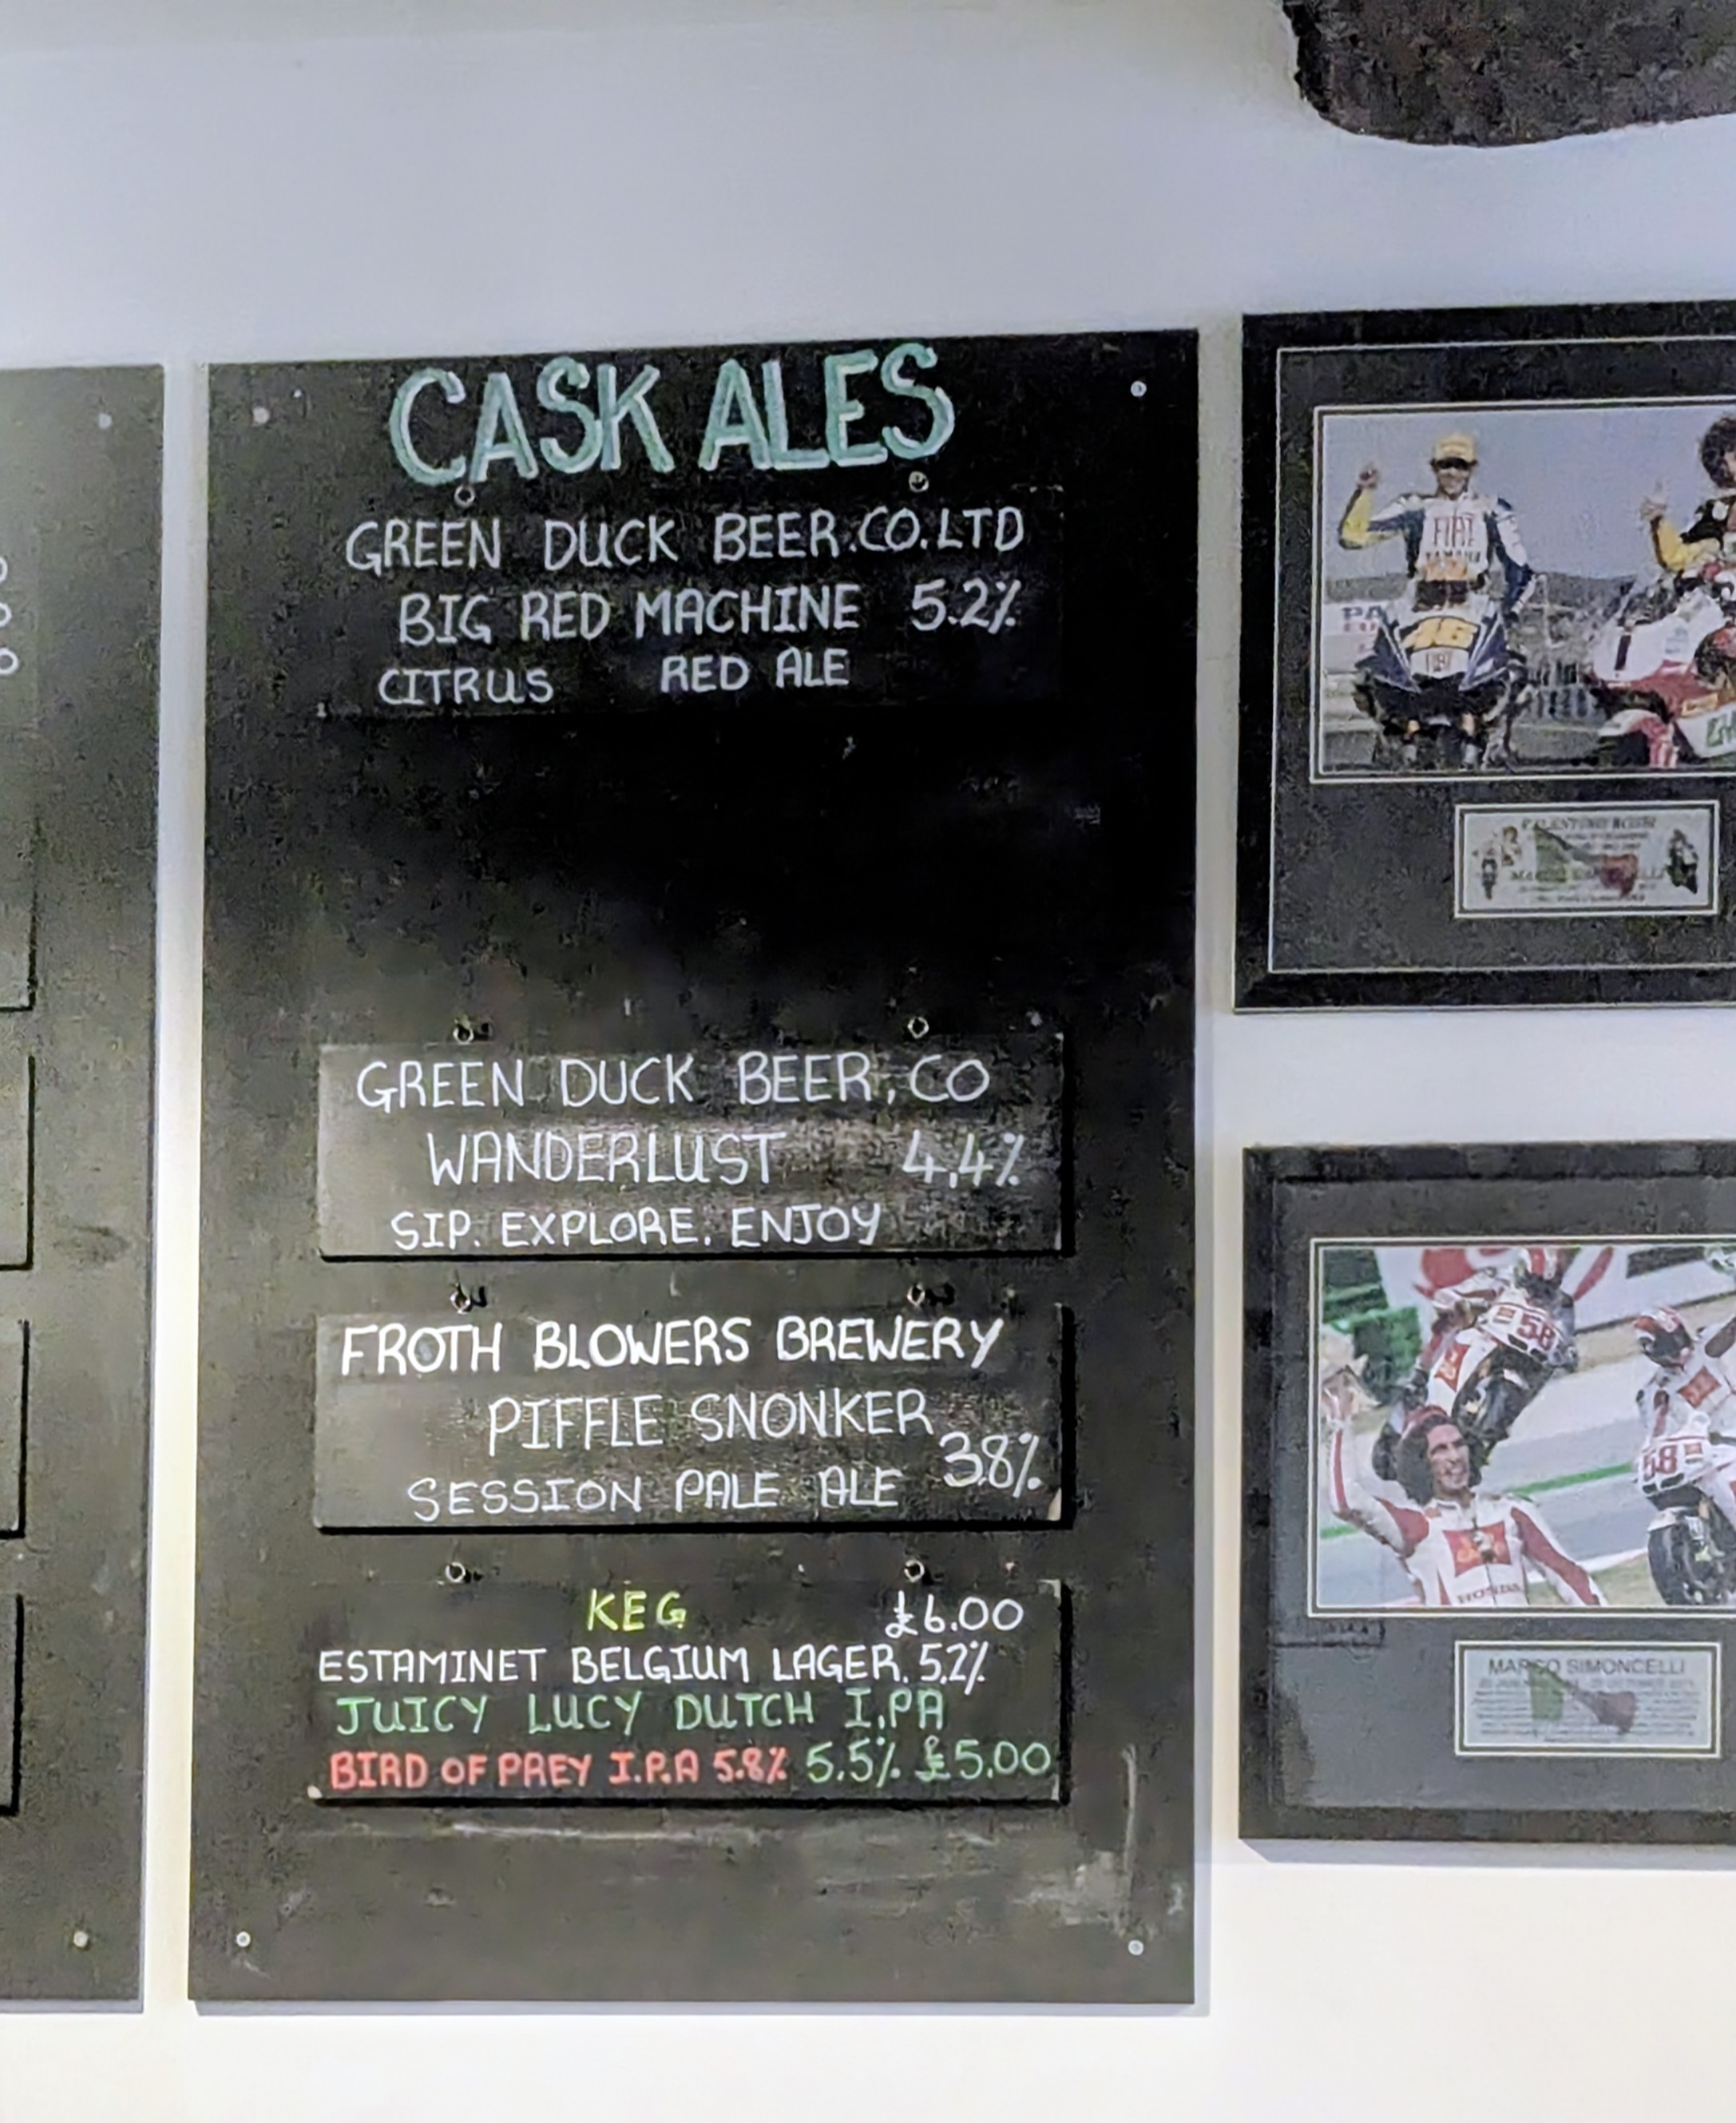 CASK ALES
GREEN DUCK BEER.CO.LTD
BIG RED MACHINE 5.2%
CITRUS RED ALE
GREEN DUCK BEER.CO
WANDERLUST 4.4%
SIP. EXPLORE. ENJOY
FROTH BLOWERS BREWERY
PIFFLE SNONKER
SESSION PALE ALE 3.8%
KEG £6.00
ESTAMINET BELGIUM LAGER. 5.2%
JUICY LUCY DUTCH I.PA
BIRD OF PREY I.P.A 5.8% 5.5% £5.00
FIAT
YAMAHA
46
FIAT
1
VALENTINO ROSSI
58
58
HONDA
MARCO SIMONCELLI